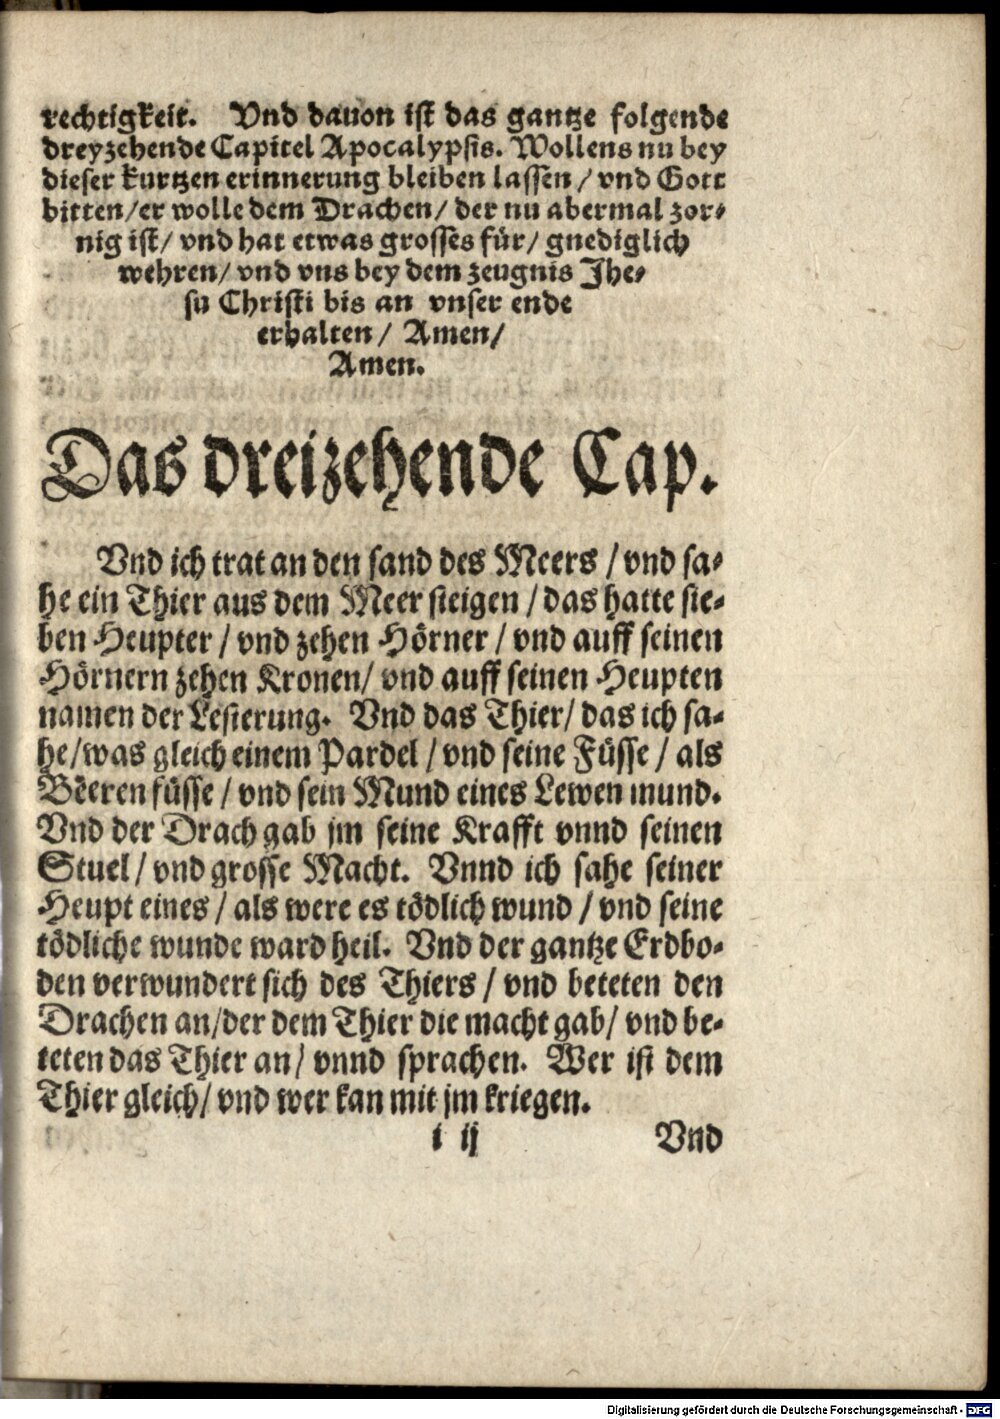 rechtigkeit. Vnd dauon ist das gantze folgende
dreyzehende Capitel Apocalypsis. Wollens nu bey
dieser kurtzen erinnerung bleiben lassen / vnd Gott
bitten / er wolle dem Drachen / der nu abermal zor-
nig ist / vnd hat etwas grosses für / gnediglich
wehren / vnd vns bey dem zeugnis Jhe-
su Christi bis an vnser ende
erhalten / Amen /
Amen.
Das dreizehende Cap.
Vnd ich trat an den sand des Meers / vnd sa-
he ein Thier aus dem Meer steigen / das hatte sie-
ben Heupter / vnd zehen Hörner / vnd auff seinen
Hörnern zehen Kronen / vnd auff seinen Heupten
namen der Lesterung. Vnd das Thier / das ich sa-
he / was gleich einem Pardel / vnd seine Füsse / als
Beeren füsse / vnd sein Mund eines Lewen mund.
Vnd der Drach gab jm seine Krafft vnnd seinen
Stuel / vnd grosse Macht. Vnnd ich sahe seiner
Heupt eines / als were es tödlich wund / vnd seine
tödliche wunde ward heil. Vnd der gantze Erdbo-
den verwundert sich des Thiers / vnd beteten den
Drachen an / der dem Thier die macht gab / vnd be-
teten das Thier an / vnnd sprachen. Wer ist dem
Thier gleich / vnd wer kan mit jm kriegen.
i ij Vnd
Digitalisierung gefördert durch die Deutsche Forschungsgemeinschaft - DFG